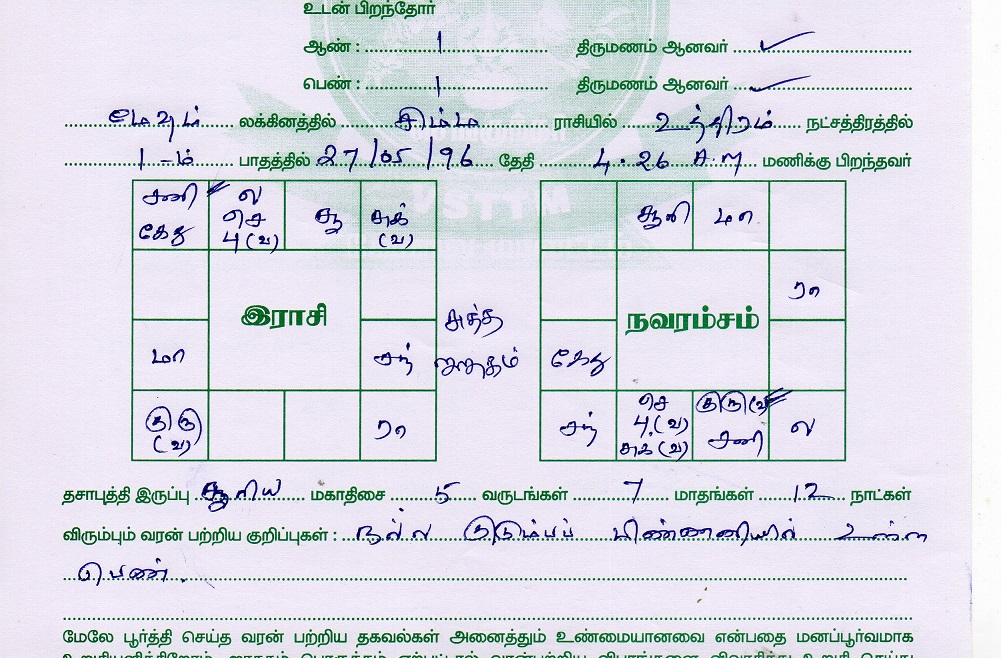 உடன் பிறந்தோர்
ஆண் : 1 திருமணம் ஆனவர் ✓
பெண் : 1 திருமணம் ஆனவர் ✓
மேஷம் லக்கினத்தில் சிம்ம ராசியில் உத்திரம் நட்சத்திரத்தில்
1-ம் பாதத்தில் 27/05/96 தேதி 4.26 A.M மணிக்கு பிறந்தவர்
சனி ல சூ சுக்
கேது செ (வ)
பு (வ)
இராசி
மா சந்
குரு ரா
(வ)
சுத்த
ஜாதகம்
சூரி மா
ரா
நவரம்சம்
கேது
சந் செ குரு(வ) ல
பு.(வ) சனி
சுக்(வ)
தசாபுத்தி இருப்பு சூரிய மகாதிசை 5 வருடங்கள் 7 மாதங்கள் 12 நாட்கள்
விரும்பும் வரன் பற்றிய குறிப்புகள் : நல்ல குடும்பப் பின்னணியில் உள்ள
பெண்.
மேலே பூர்த்தி செய்த வரன் பற்றிய தகவல்கள் அனைத்தும் உண்மையானவை என்பதை மனப்பூர்வமாக